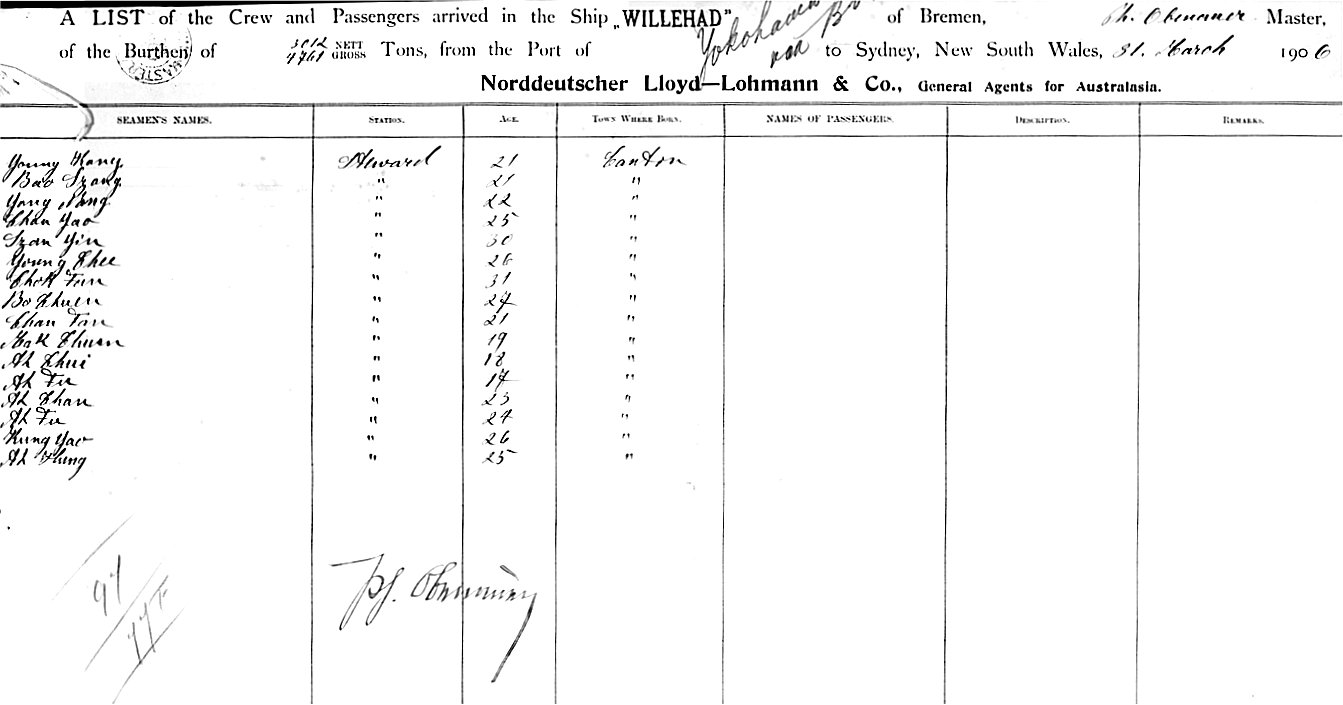 A LIST of the Crew and Passengers arrived in the Ship „WILLEHAD” of Bremen, Ph. Obenauer Master,
of the Burthen of 3012 NETT 4761 GROSS Tons, from the Port of Yokohama to Sydney, New South Wales, 31. March 1906
Norddeutscher Lloyd—Lohmann & Co., General Agents for Australasia.
SEAMEN'S NAMES. STATION. AGE. TOWN WHERE BORN. NAMES OF PASSENGERS. DESCRIPTION. REMARKS.
Young Kang Steward 21 Canton
Bao Szang " 21 "
Yang Nang " 22 "
Chan Yao " 25 "
Szan Yin " 30 "
Young Chee " 26 "
Chok Fan " 31 "
Bo Chuen " 27 "
Chan Fan " 21 "
Mak Chuen " 19 "
Ah Chui " 18 "
Ah Fu " 17 "
Ah Chan " 23 "
Ah Fu " 24 "
Kung Yao " 26 "
Ah Hung " 25 "
Ph. Obenauer
97